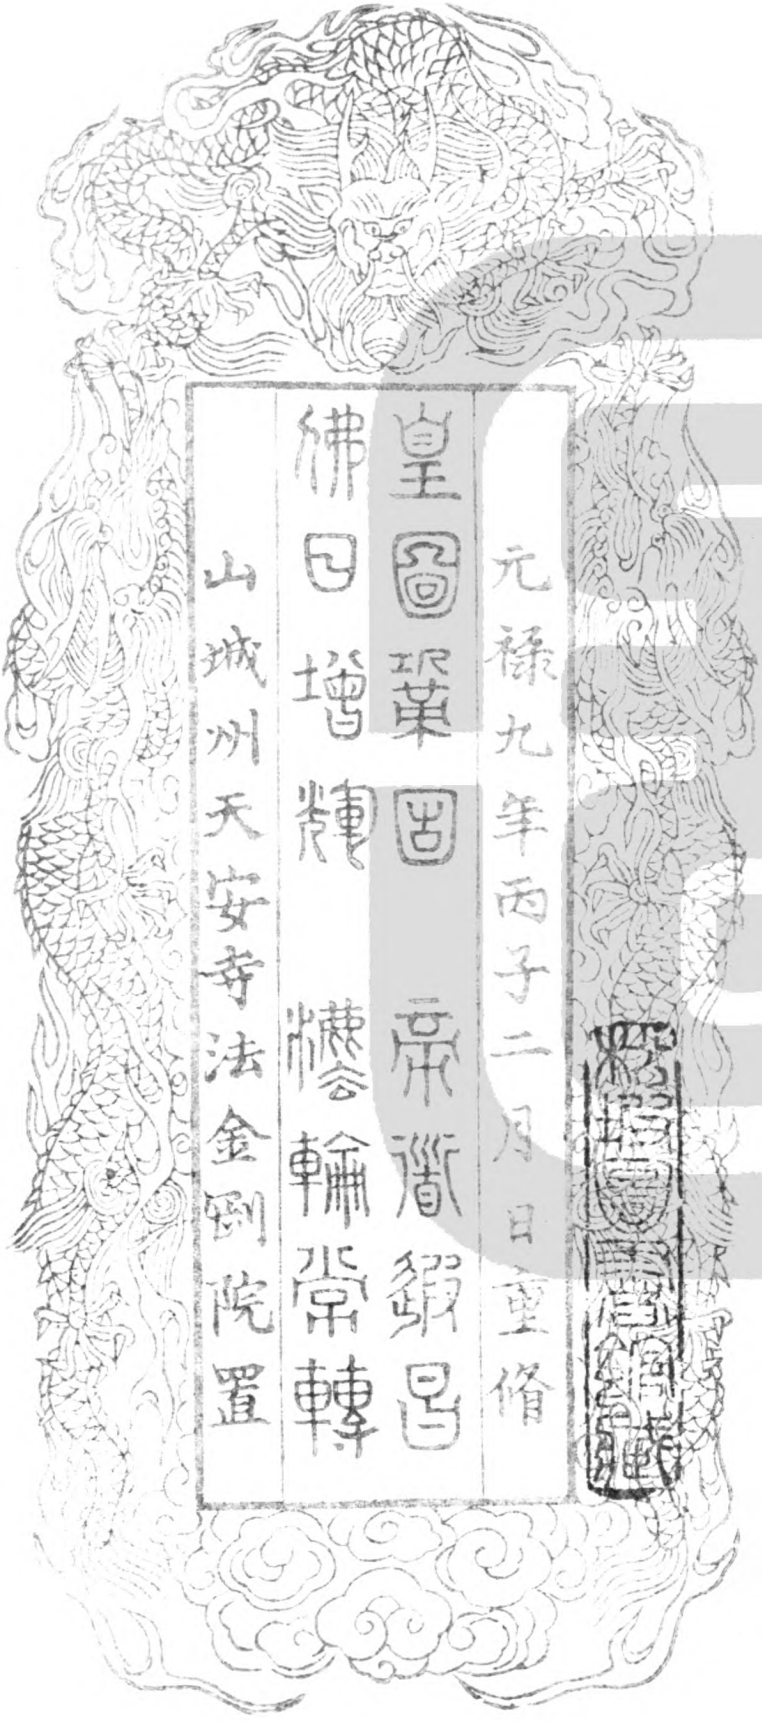 松坡圖書館藏
元禄九年丙子二月日重脩
皇圖鞏固 帝道遐昌
佛日增輝 灋輪常轉
山城州天安寺法金剛院置